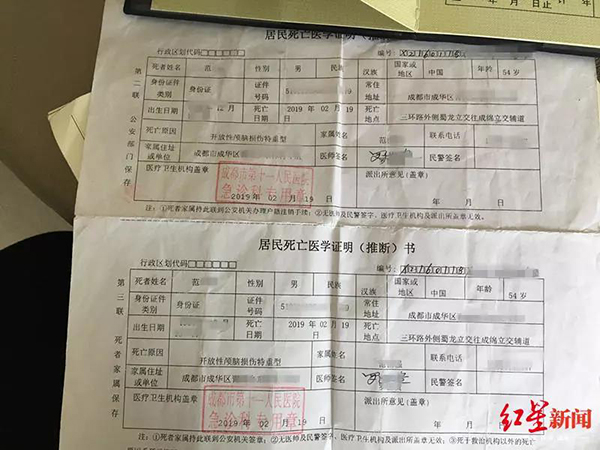 年 月 日止
居民死亡医学证明(推断
行政区划代码□□□□□□ 编号:
死者姓名 范 性别 男 民族 汉族 国家或地区 中国 年龄 54岁
身份证件类别 身份证 证件号码 51 常住地址 成都市成华区
出生日期 12月 死亡日期 2019年02月19日 死亡地点 三环路外侧蜀龙立交往成绵立交辅道
死亡原因 开放性颅脑损伤特重型 家属姓名 范 联系电话
家属住址或单位 成都市成华区 医师签名 民警签名
医疗卫生机构盖章 派出所意见(盖章)
成都市第十一人民医院
急诊科专用章
2019年02月19日
注:①死者家属持此联到公安机关办理户籍注销手续;②无医师及民警签字、医疗卫生机构及派出所盖章无效。
第二联 公安部门保存
居民死亡医学证明(推断)书
行政区划代码□□□□□□ 编号:
死者姓名 范 性别 男 民族 汉族 国家或地区 中国 年龄 54岁
身份证件类别 身份证 证件号码 51 常住地址 成都市成华区
出生日期 死亡日期 2019年02月19日 死亡地点 三环路外侧蜀龙立交往成绵立交辅道
死亡原因 开放性颅脑损伤特重型 家属姓名 联系电话
家属住址或单位 成都市成华区 医师签名 民警签名
医疗卫生机构盖章 派出所意见(盖章)
成都市第十一人民医院
急诊科专用章
2019年02月19日
注:①死者家属持此联到公安机关签章;②无医师及民警签字、医疗卫生机构及派出所盖章无效;③死于救治机构以外的死亡
第三联 死者家属保存
红星新闻